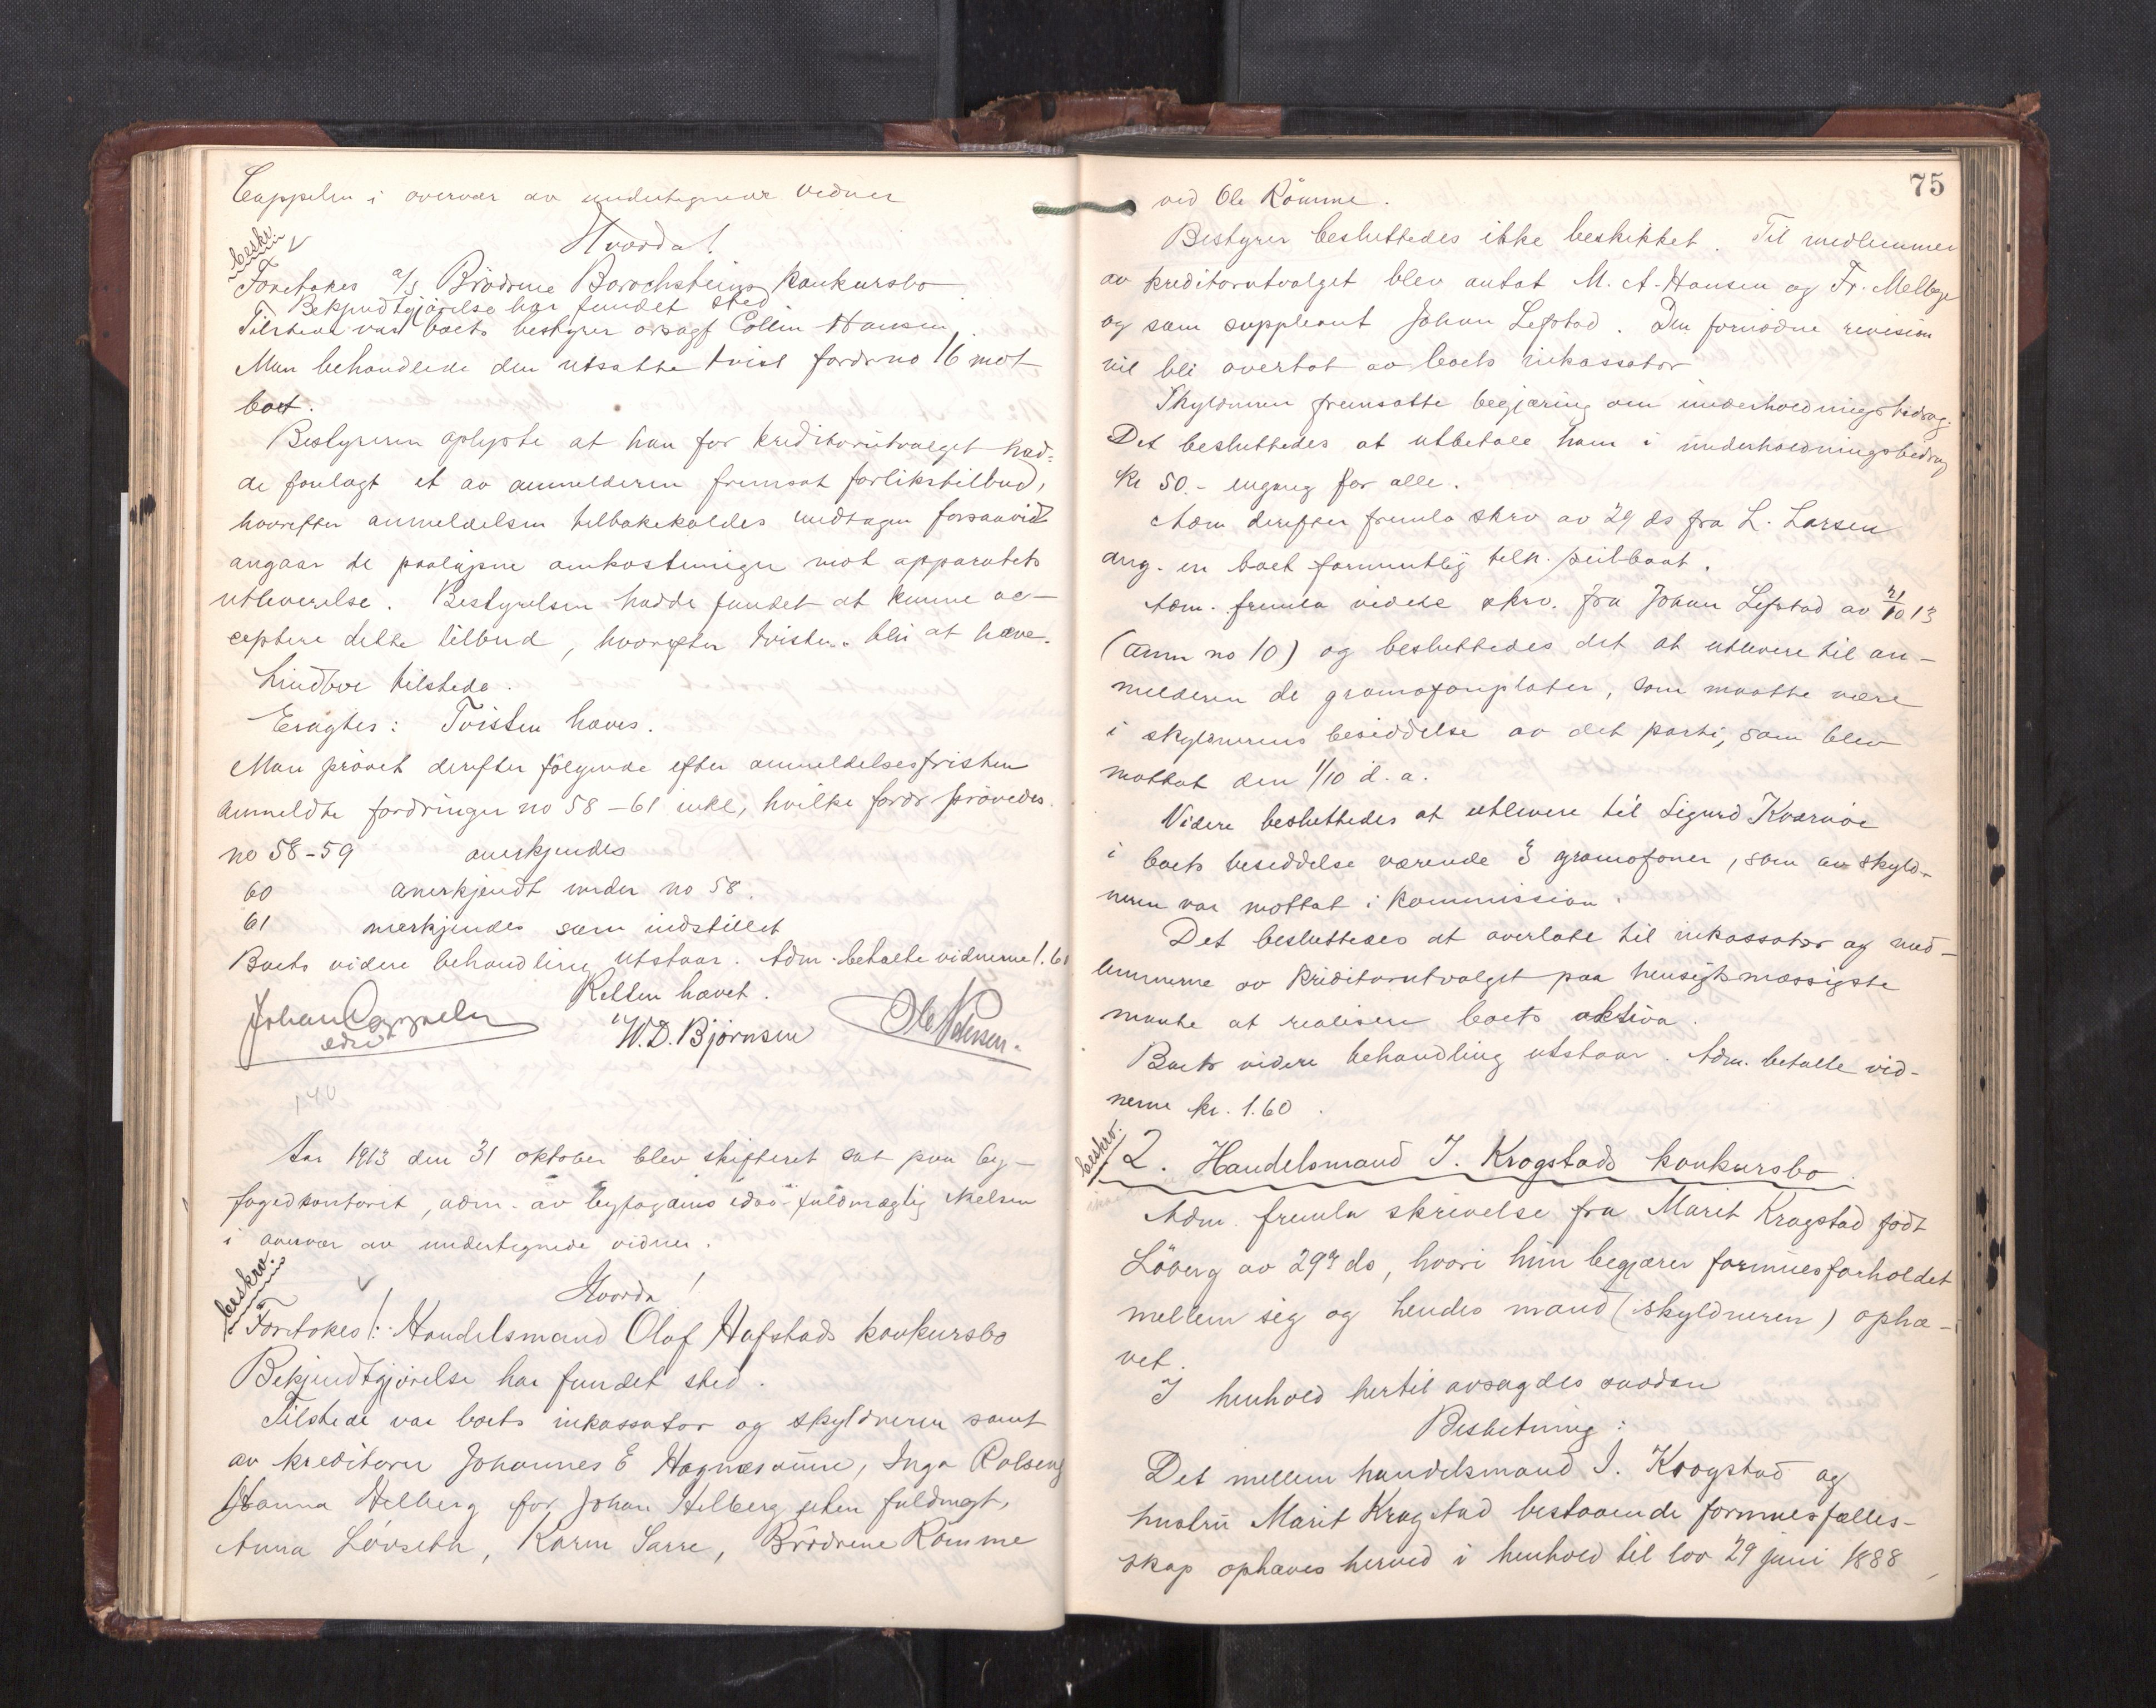 Cappelen i overvær av undertegnede vidner
Hvorda!
beskr.
Foretokes a/s Brödrene Borochsteins konkursbo
Bekjendtgjörelse har fundet sted
Tilstede var boets bestyrer orsagf Collin Hansen.
Man behandlede den utsatte tvist fordr no 16 mot
boet.
Bestyreren oplyste at han for kreditorutvalget had-
de forelagt et av anmelderen fremsat forlikstilbud,
hvorefter anmeldelsen tilbakekaldes undtagen forsaavidt
angaar de paaløpne omkostninger mot apparatets
utleverelse. Bestyrelsen hadde fundet at kunne ac-
ceptere dette tilbud, hvorefter tvisten blir at hæve.
Lindboe tilstede.
Eragtes: Tvisten hæves.
Man prövet derefter fölgende efter anmeldelsesfristen
anmeldte fordringer no 58-61 inkl, hvilke fordr prövedes.
no 58-59 anerkjendes
60 anerkjendt under no 58.
61 anerkjendes som indstillet
Boets videre behandling utstaar. Adm. betalte vidnerne 1.60
Retten hævet.
Johan Cappelen
edsv
W.D. Bjørnsen
Ole Pedersen.
140
Aar 1913 den 31 oktober blev skifteret sat paa by-
fogedkontoret, adm. av byfogdens edsv. fuldmægtig Nielsen
i overvær av undertegnede vidner.
beskrv.
Hvorda!
Foretokes 1. Handelsmand Olaf Hafstads konkursbo
Bekjendtgjörelse har fundet sted.
Tilstede var boets inkassator og skyldneren samt
av kreditorer Johannes E Hognæsaune, Inga Rolseng
Hanna Helberg for Johan Helberg uten fuldmagt,
Anna Lövseth, Karen Sarre, Brödrene Römme
75
ved Ole Römme.
Bestyrer besluttedes ikke beskikket. Til medlemmer
av kreditorutvalget blev antat M. A. Hansen og Fr. Mellbye
og som suppleant Johan Lefstad. Den fornödne revision
vil bli overtat av boets inkassator
Skyldneren fremsatte begjæring om underholdningsbidrag.
Det besluttedes at utbetale ham i underholdningsbidrag
kr 50.- engang for alle.
Adm derefter fremla skrv av 29 ds fra L. Larsen
ang. en boet formentlig tilh. seilbaat.
Adm. fremla videre skrv. fra Johan Lefstad av 21/10 13
(anm no 10) og besluttedes det at utlevere til an-
melderen de gramofonplater, som maatte være
i skyldnerens besiddelse av det parti, som blev
mottat den 1/10 d. a.
Videre besluttedes at utlevere til Sigurd Kværnöe
i boets besiddelse værende 3 gramofoner, som av skyld-
neren var mottat i kommission.
Det besluttedes at overlate til inkassator og med-
lemmerne av kreditorutvalget paa hensigtsmæssigste
maate at realisere boets aktiva.
Boets videre behandling utstaar. Adm. betalte vid-
nerne kr. 1.60.
beskrv.
2. Handelsmand J. Krogstads konkursbo.
Adm. fremla skrivelse fra Marit Krogstad födt
Löberg av 29de ds, hvori hun begjærer formuesforholdet
mellem sig og hendes mand (skyldneren) ophæ-
vet.
I henhold hertil avsagdes saadan
Beslutning:
Det mellem handelsmand J. Krogstad og
hustru Marit Krogstad bestaaende formuesfælles-
skap ophæves herved i henhold til lov 29 juni 1888,